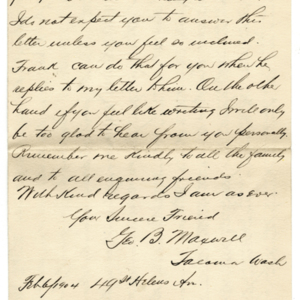 I do not expect you to answer this
letter unless you feel so inclined.
Frank can do that for you when he
replies to my letter to him. On the other
hand if you feel like writing I will only
be too glad to hear from you personally.
Remember me kindly to all the family
and to all enquiring friends.
With kind regards I am as ever
Your Sincere Friend
Geo. B. Maxwell
Tacoma Wash
Feb 6/1904 St Helens Av.